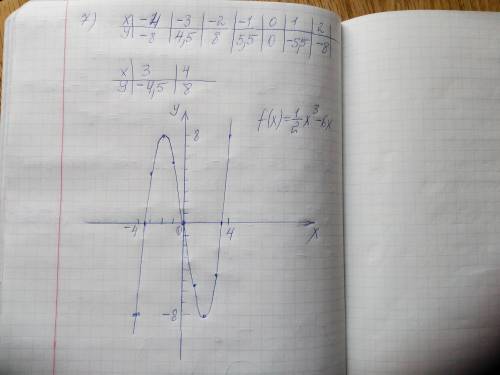 7) x | -4 | -3 | -2 | -1 | 0 | 1 | 2
y | -8 | 4,5 | 8 | 5,5 | 0 | -5,5 | -8
x | 3 | 4
y | -4,5 | 8
y
8
f(x)=1/2x³-6x
-4 0 4
x
-8